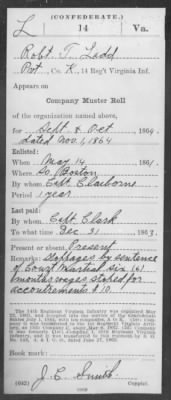 (CONFEDERATE.)
L 14 Va.
Robt. T. Ladd
Pvt, Co. K, 14 Reg't Virginia Inf.
Appears on
Company Muster Roll
of the organization named above,
for Sept & Oct, 1864.
dated Nov. 1, 1864
Enlisted:
When May 14, 186
Where So. Boston
By whom Capt Claiborne
Period 1 year
Last paid:
By whom Capt Clark
To what time Dec 31, 1863
Present or absent Present
Remarks: Stoppages by sentence
of Court Martial six (6)
months wages stoped for
accoutrements $ 10.
The 14th Regiment Virginia Infantry was organized May
Book mark:
J. C. Smith
(642) Copyist.